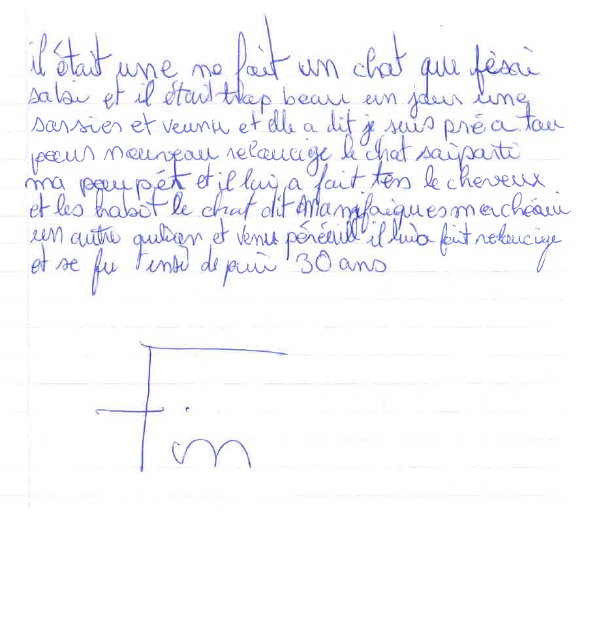 il était une no fait un chat que fèsai
salse et il était trap beau un jour une
sarsier et veunu et elle a dit je suis pré a tou
pour nouveau relouciage le chat sai parti
ma poupét et il lui a fait tens le cheveux
et les habit le chat dit
un autre et venu il lui a fait relouciage
et se fu insi depuis 30 ans
Fin